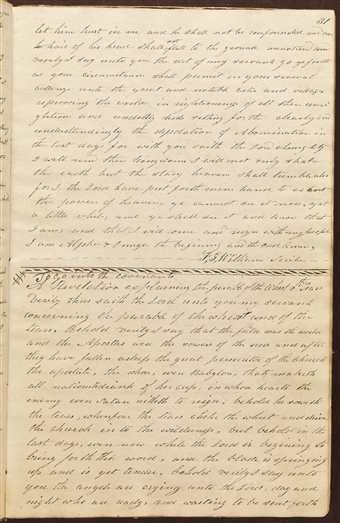 31
let him trust in me and he shall not be confounded and an
hair of his head shall not fall to the ground unnoticed
verily I say unto you the rest of my servants go ye forth
as your circumstances shall permit in your several
callings unto the great and notable cities and villages
reproveing the world in righteousness of all their unri
ghteous and ungodly deeds setting forth clearly and
understandingly the desolation of Abomination in
the last days for with you saith the Lord almighty
I will rend their kingdoms I will not only shake
the earth but the starry heavens shall tremble
for I the Lord have put forth mine hand to exert
the powers of heaven ye cannot see it now yet
a little while and ye shall see it and know that
I am and that I will come and reign with my people
I am Alpha & Omega the begining and the end Amen
F. G. William Scribe
To go into the covenants
A Revelation explaining the parable of the wheat & Tears
Verily thus saith the Lord unto you my servants
concerning the parable of the wheat and of the
tears, Behold verily I say that the field was the world
and the Apostles were the sowers of the seed and after
they have fallen asleep the great persecutor of the church
the apostate, the whore even Babylon that maketh
all nations to drink of her cup, in whose hearts the
enemy even Satan sitteth to reign, behold he soweth
the tears, wherefore the tears choke the wheat and drive
the church into the wilderness, but behold in the
last days, even now while the Lord is begining to
bring forth the word, and the blade is springing
up and is yet tender, behold verily I say unto
you the angels are crying unto the Lord day and
night who are ready and waiting to be sent forth